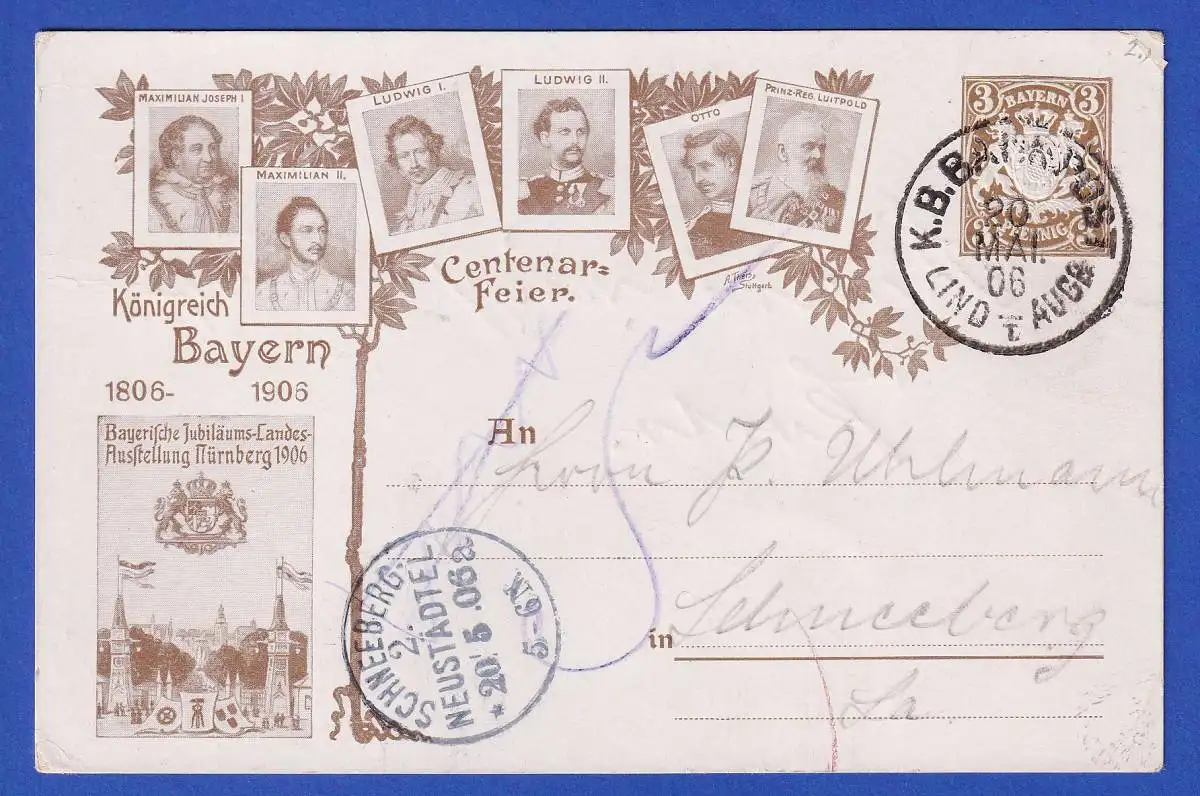 2.)
MAXIMILIAN JOSEPH I
LUDWIG I.
LUDWIG II.
OTTO
PRINZ-REG. LUITPOLD
MAXIMILIAN II.
3 BAYERN 3
PFENNIG
K.B. BAHNPOST
20
MAI.
06
LIND AUGB
Stuttgart.
Centenar-
Feier.
Königreich
Bayern
1806-1906
Bayerische Jubiläums-Landes-
Ausstellung Nürnberg 1906
An
Herrn P. Uhlmann
in Schneeberg
Sa.
SCHNEEBERG.
2.
NEUSTÄDTEL
* 20 5 .06
5-6 N.